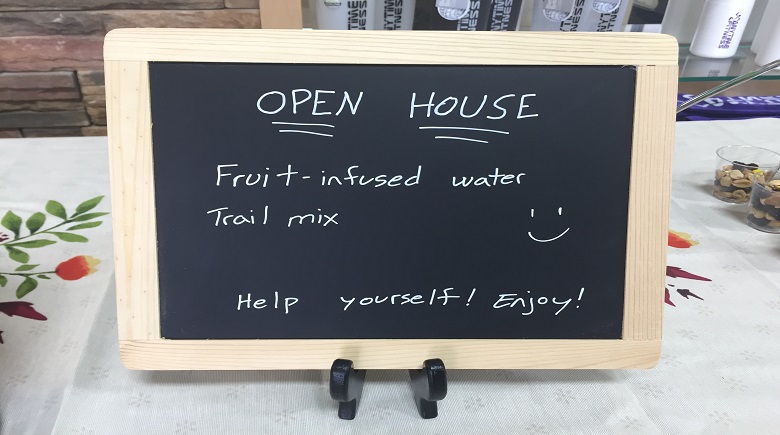 OPEN HOUSE
Fruit-infused water
Trail mix
Help yourself! Enjoy!